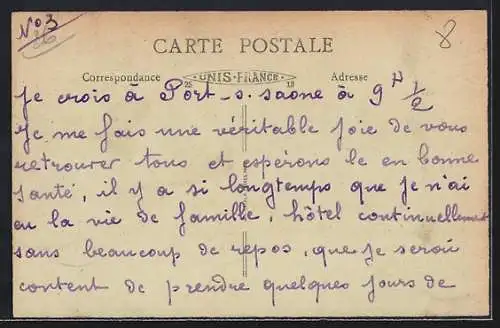 No 3
36
8
CARTE POSTALE
Correspondance UNIS-FRANCE Adresse
25 18
Je crois à Port-s-saone à 9H 1/2
Je me fais une véritable joie de vous
retrouver tous et espérons le en bonne
santé, il y a si longtemps que je n'ai
eu la vie de famille, hôtel continuellement
sans beaucoup de repos, que je serai
content de prendre quelques jours de